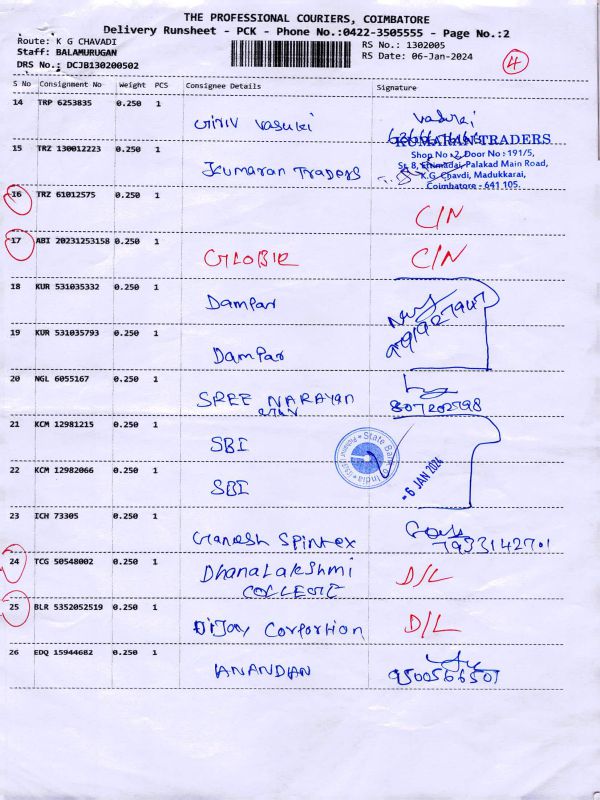 THE PROFESSIONAL COURIERS, COIMBATORE
Delivery Runsheet - PCK - Phone No.:0422-3505555 - Page No.:2
Route: K G CHAVADI
RS No.: 1302005
Staff: BALAMURUGAN
RS Date: 06-Jan-2024
DRS No.: DCJB130200502
4
S No Consignment No Weight PCS Consignee Details Signature
14 TRP 6253835 0.250 1 Vasuki
15 TRZ 130012223 0.250 1 Kumaran Traders
KUMARAN TRADERS
Shop No : 2, Door No : 191/5,
St. 8, Ettimadai, Palakad Main Road,
K.G. Chavdi, Madukkarai,
Coimbatore - 641 105.
16 TRZ 61012575 0.250 1 C/N
17 ABI 20231253158 0.250 1 C/N
18 KUR 531035332 0.250 1 Dampar
19 KUR 531035793 0.250 1 Dampar
20 NGL 6055167 0.250 1 SREE NARAYAN
21 KCM 12981215 0.250 1 SBI
State Bank of India
- 6 JAN 2024
22 KCM 12982066 0.250 1 SBI
23 ICH 73305 0.250 1 Ganesh Spintex
24 TCG 50548002 0.250 1 DhanaLakshmi D/L
COLLEGE
25 BLR 5352052519 0.250 1 D/L
26 EDQ 15944682 0.250 1 9500566501